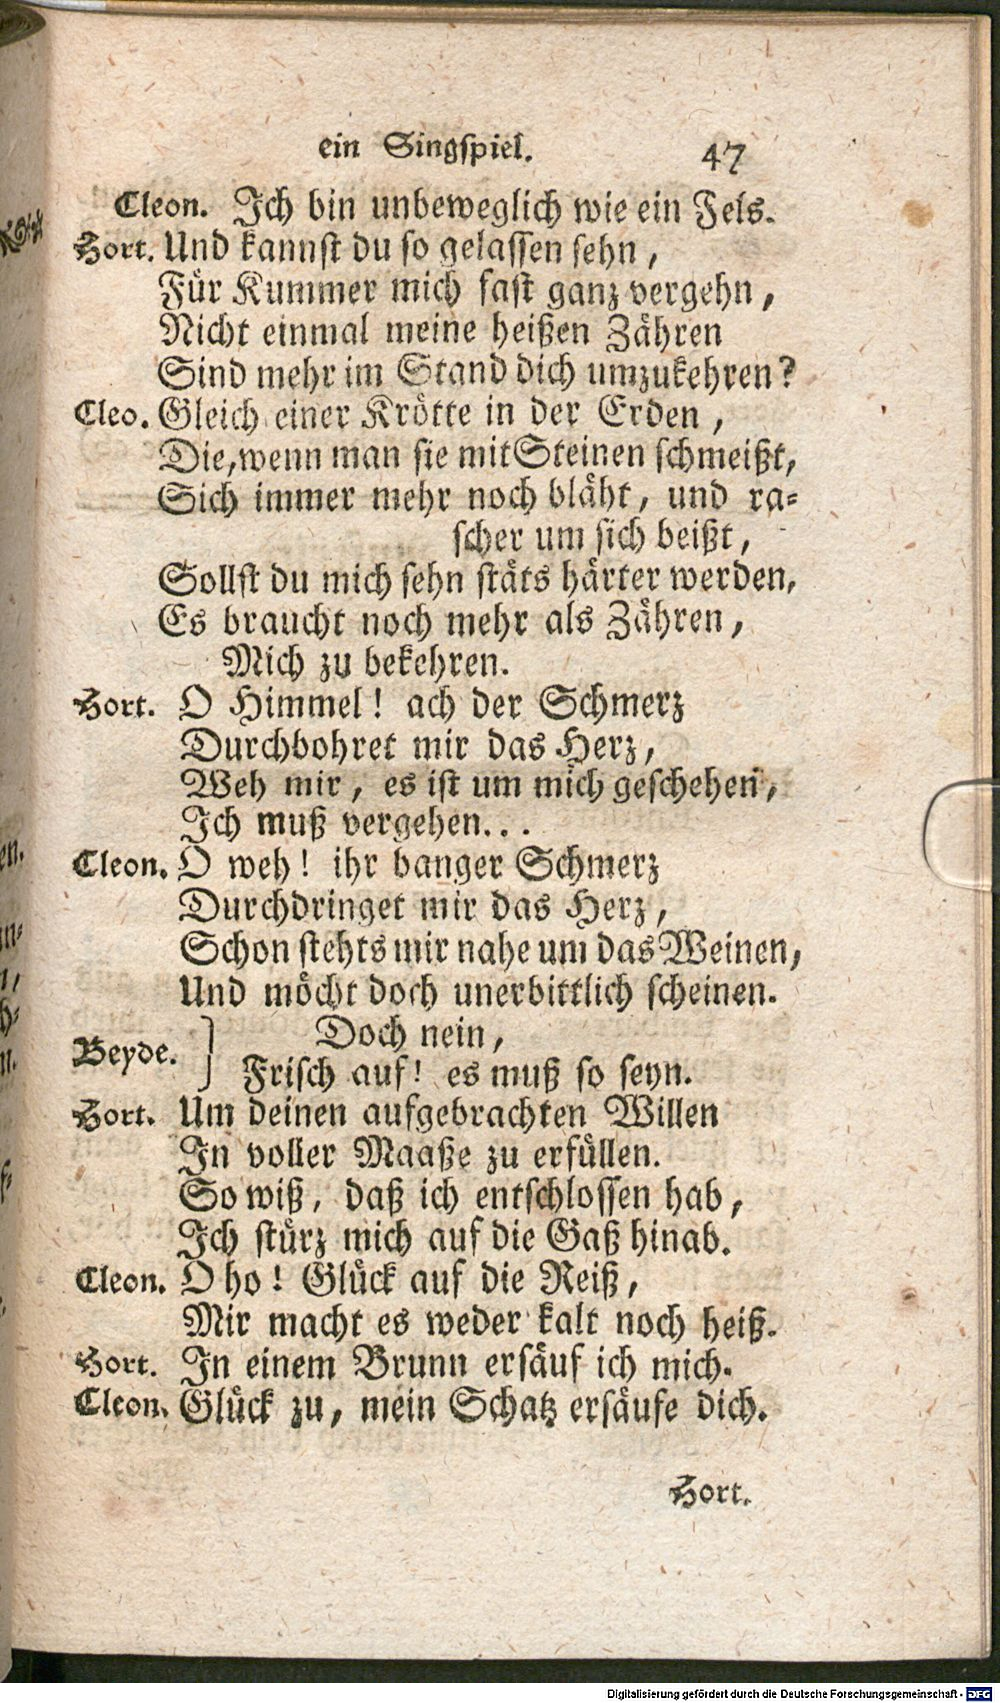 ein Singspiel. 47
Cleon. Ich bin unbeweglich wie ein Fels.
Hort. Und kannst du so gelassen sehn,
Für Kummer mich fast ganz vergehn,
Nicht einmal meine heißen Zähren
Sind mehr im Stand dich umzukehren?
Cleo. Gleich einer Krötte in der Erden,
Die, wenn man sie mit Steinen schmeißt,
Sich immer mehr noch bläht, und ra-
scher um sich beißt,
Sollst du mich sehn stäts härter werden,
Es braucht noch mehr als Zähren,
Mich zu bekehren.
Hort. O Himmel! ach der Schmerz
Durchbohret mir das Herz,
Weh mir, es ist um mich geschehen,
Ich muß vergehen...
Cleon. O weh! ihr banger Schmerz
Durchdringet mir das Herz,
Schon stehts mir nahe um das Weinen,
Und möcht doch unerbittlich scheinen.
Beyde. } Doch nein,
Frisch auf! es muß so seyn.
Hort. Um deinen aufgebrachten Willen
In voller Maaße zu erfüllen.
So wiß, daß ich entschlossen hab,
Ich stürz mich auf die Gaß hinab.
Cleon. O ho! Glück auf die Reiß,
Mir macht es weder kalt noch heiß.
Hort. In einem Brunn ersäuf ich mich.
Cleon. Glück zu, mein Schatz ersäufe dich.
Hort.
Digitalisierung gefördert durch die Deutsche Forschungsgemeinschaft - DFG